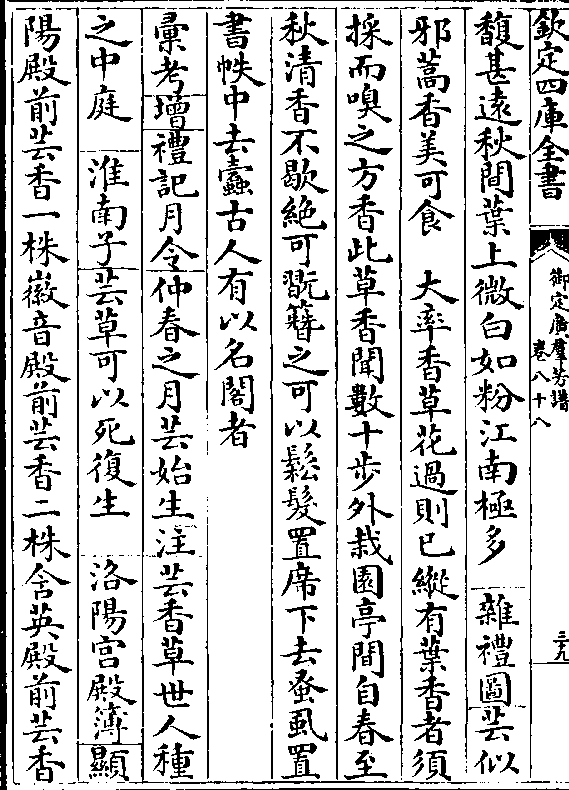 欽定四庫全書
御定廣羣芳譜
卷八十八
三九
馥甚遠秋間葉上微白如粉江南極多 雜禮圖芸似
邪蒿香美可食 大率香草花過則已縱有葉香者須
採而嗅之方香此草香聞數十步外栽園亭間自春至
秋清香不歇絶可翫簪之可以鬆髮置席下去蚤虱置
書帙中去蠹古人有以名閣者
彙考增禮記月令仲春之月芸始生注芸香草世人種
之中庭 淮南子芸草可以死復生 洛陽宫殿簿顯
陽殿前芸香一株徽音殿前芸香二株含英殿前芸香